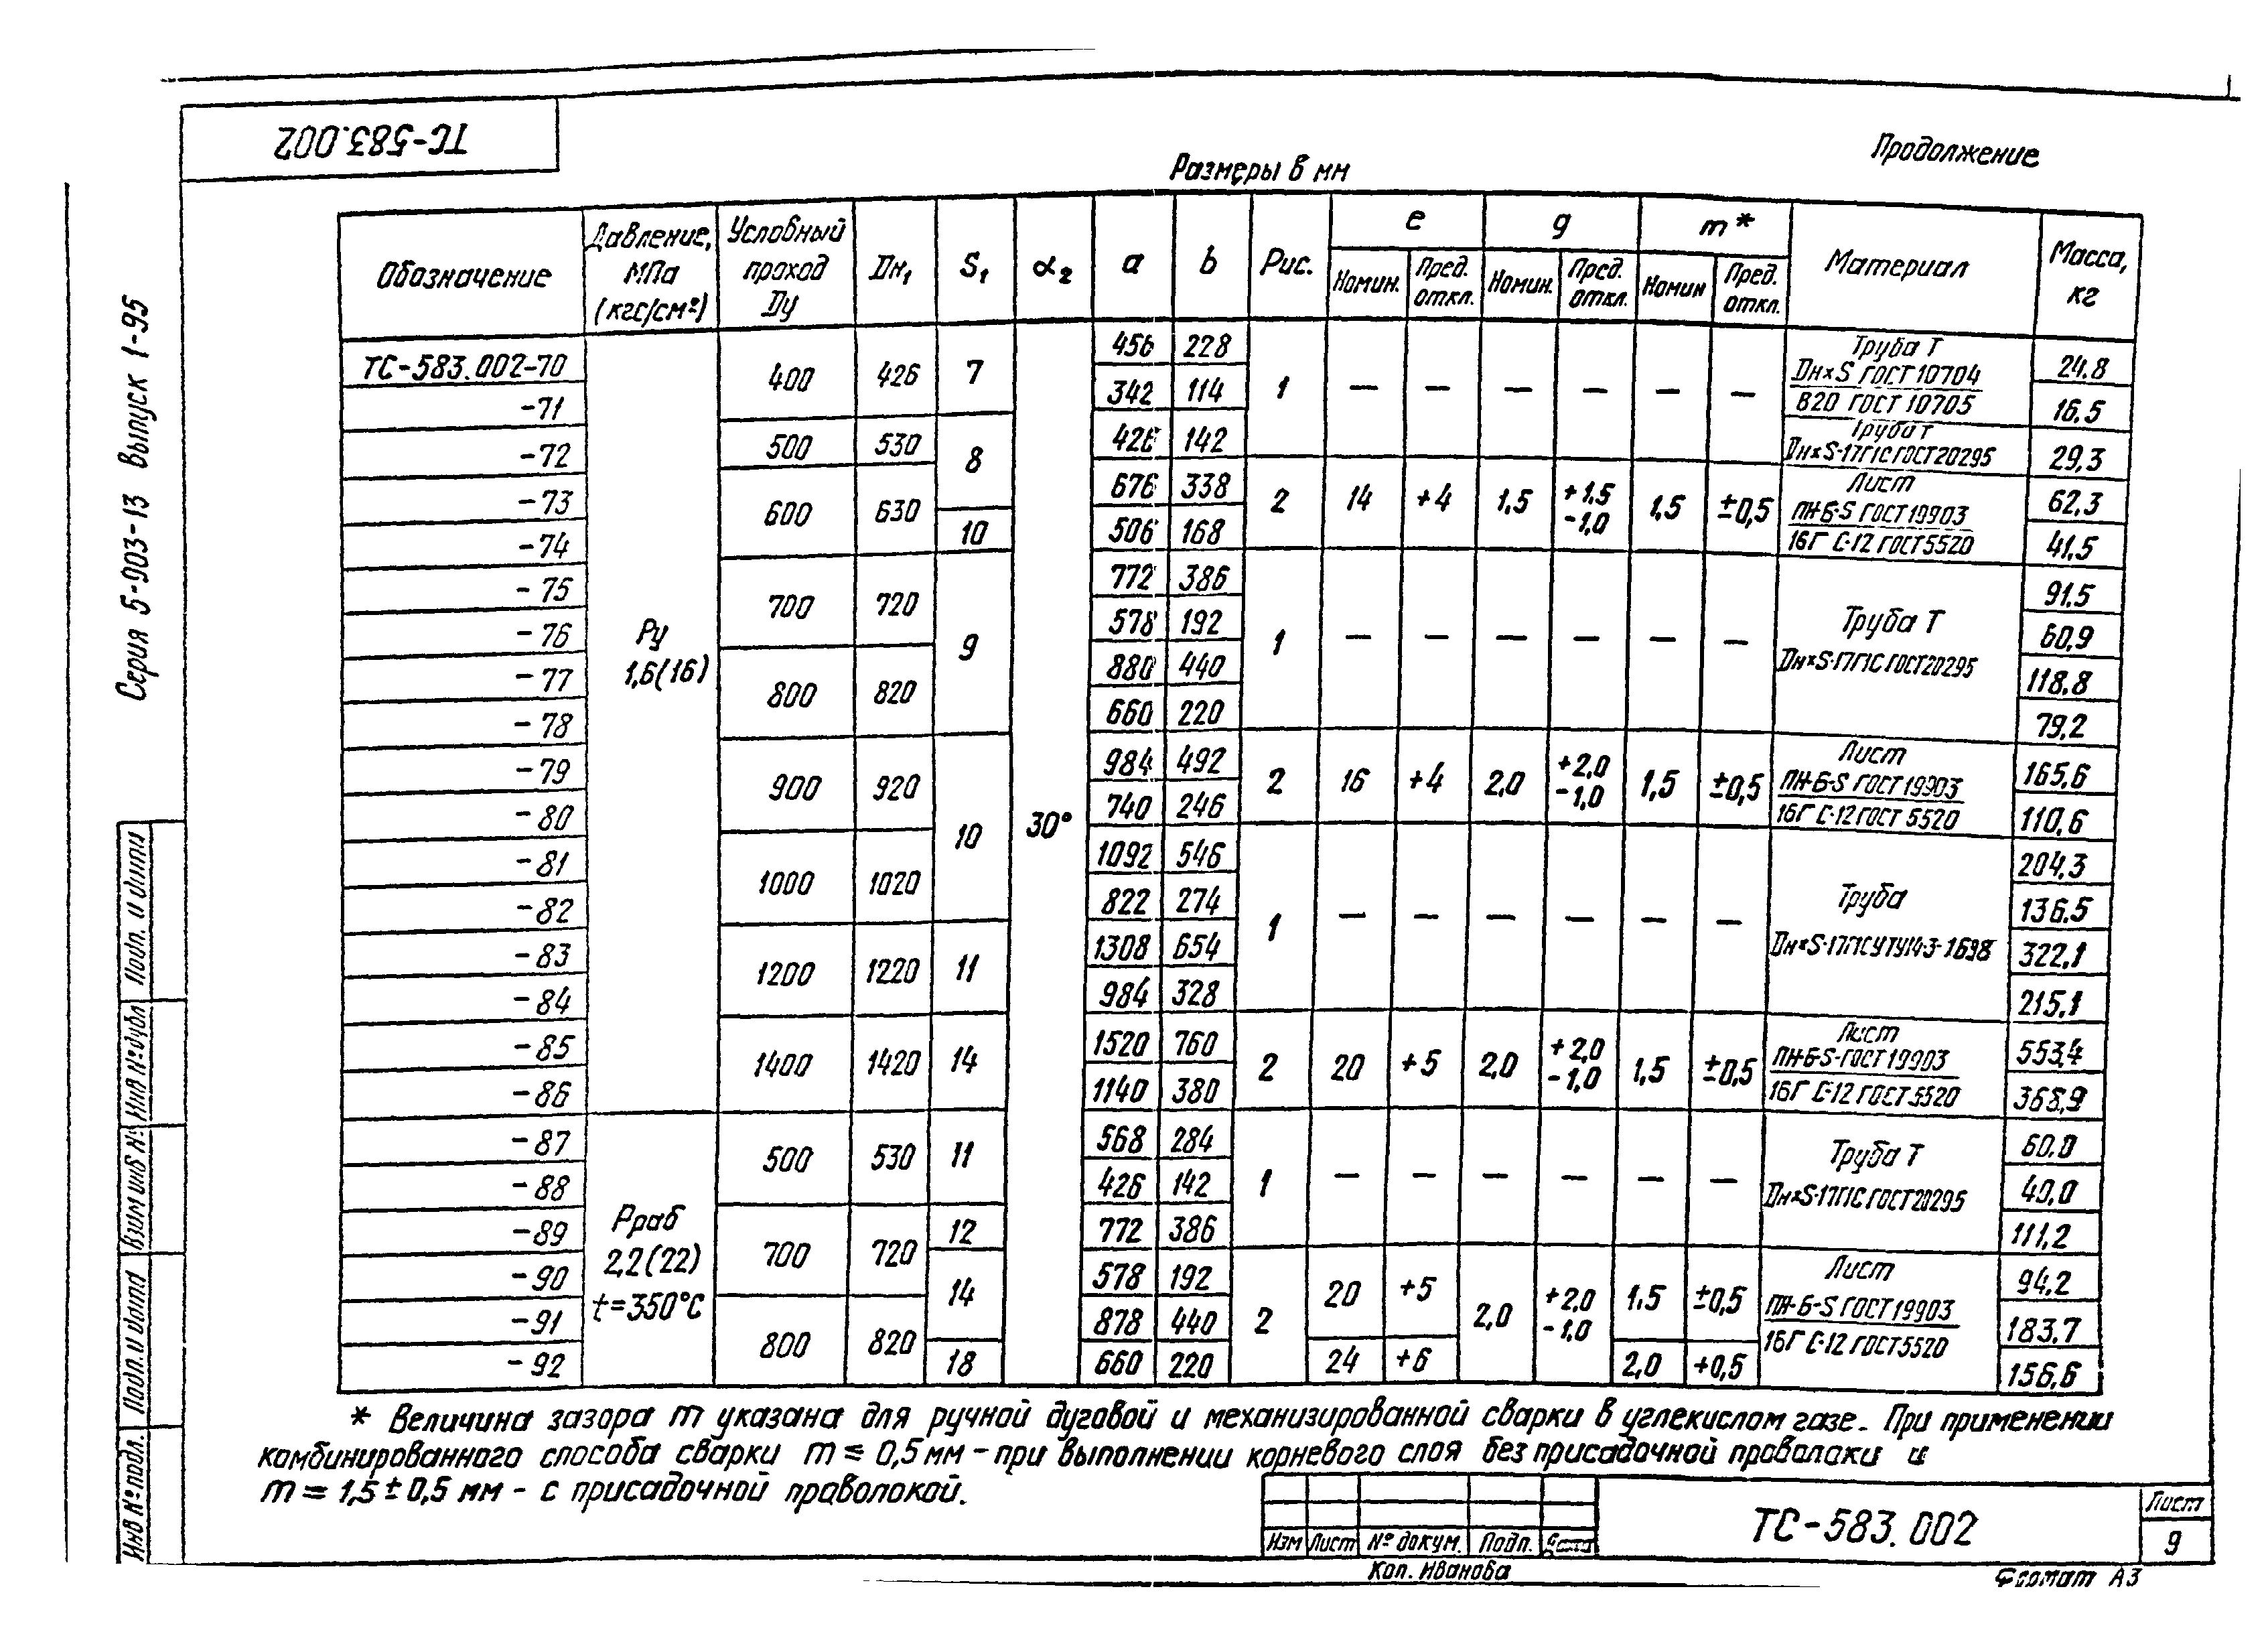 ТС-583.002
Продолжение
Размеры в мм
Обозначение
Давление, МПа (кгс/см²)
Условный проход Ду
Дн₁
S₁
α₂
a
b
Рис.
e
Номин.
Пред. откл.
g
Номин.
Пред. откл.
m*
Номин
Пред. откл.
Материал
Масса, кг
ТС-583.002-70 Ру 1,6(16) 400 426 7 30° 456 228 1 — — — — — — Труба Т Дн×S ГОСТ 10704 В20 ГОСТ 10705 24.8
-71 342 114 16.5
-72 500 530 8 426 142 Труба Т Дн×S-17Г1С ГОСТ20295 29,3
-73 600 630 676 338 2 14 +4 1,5 +1,5 -1,0 1,5 ±0,5 Лист ПН-Б-S ГОСТ19903 16Г С-12 ГОСТ5520 62,3
-74 10 506 168 41,5
-75 700 720 9 772 386 1 — — — — — — Труба Т Дн×S-17Г1С ГОСТ20295 91,5
-76 578 192 60,9
-77 800 820 880 440 118.8
-78 660 220 79,2
-79 900 920 10 984 492 2 16 +4 2,0 +2,0 -1,0 1,5 ±0,5 Лист ПН-Б-S ГОСТ19903 16Г С-12 ГОСТ 5520 165,6
-80 740 246 110,6
-81 1000 1020 1092 546 1 — — — — — — Труба Дн×S-17Г1СУТУ14-3-1698 204,3
-82 822 274 136.5
-83 1200 1220 11 1308 654 322,1
-84 984 328 215,1
-85 1400 1420 14 1520 760 2 20 +5 2,0 +2,0 -1,0 1,5 ±0,5 Лист ПН-Б-S-ГОСТ19903 16Г С-12 ГОСТ5520 553,4
-86 1140 380 368,9
-87 Рраб 2,2(22) t=350°С 500 530 11 568 284 1 — — — — — — Труба Т Дн×S-17Г1С ГОСТ20295 60.0
-88 426 142 40,0
-89 700 720 12 772 386 111,2
-90 14 578 192 2 20 +5 2,0 +2,0 -1,0 1,5 ±0,5 Лист ПН-Б-S ГОСТ19903 16Г С-12 ГОСТ5520 94,2
-91 800 820 878 440 183.7
-92 18 660 220 24 +6 2,0 +0,5 156,6
* Величина зазора m указана для ручной дуговой и механизированной сварки в углекислом газе. При применении
комбинированного способа сварки m = 0,5 мм - при выполнении корневого слоя без присадочной проволоки и
m = 1,5 ± 0,5 мм - с присадочной проволокой.
Изм Лист № докум. Подп. Дата
ТС-583.002
Лист
9
Коп. Иванова
Формат А3
Серия 5-903-13 Выпуск 1-95
Подп. и дата
Инв № дубл
Взам инв №
Подп. и дата
Инв № подл.